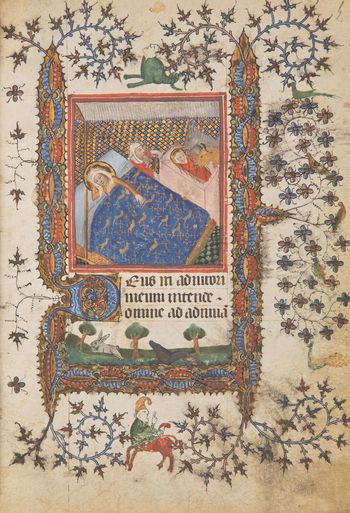 Deus in adiutori
meum intende ·
omine ad adiuuā